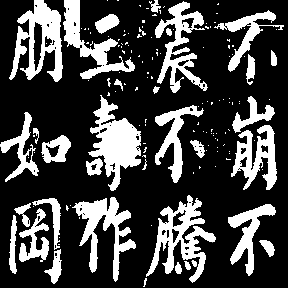 不崩不
震不騰
三壽作
朋如岡